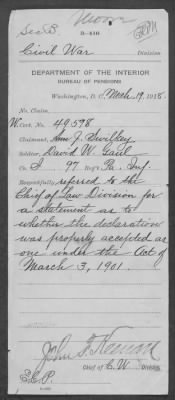 Sec B.
3-416
Civil War
Division
DEPARTMENT OF THE INTERIOR
BUREAU OF PENSIONS
Washington, D. C., Mch. 19, 1918.
No. Claim,
W. Cert. No. 49598
Claimant, Ann J.
Soldier, David W. Gaul
Co. I 97 Reg't Pa. Inf.
Respectfully referred to the
Chief of Law Division for
a statement as to
whether the declaration
was properly accepted as
one under the Act of
March 3, 1901.
John
Chief of C. W. Division